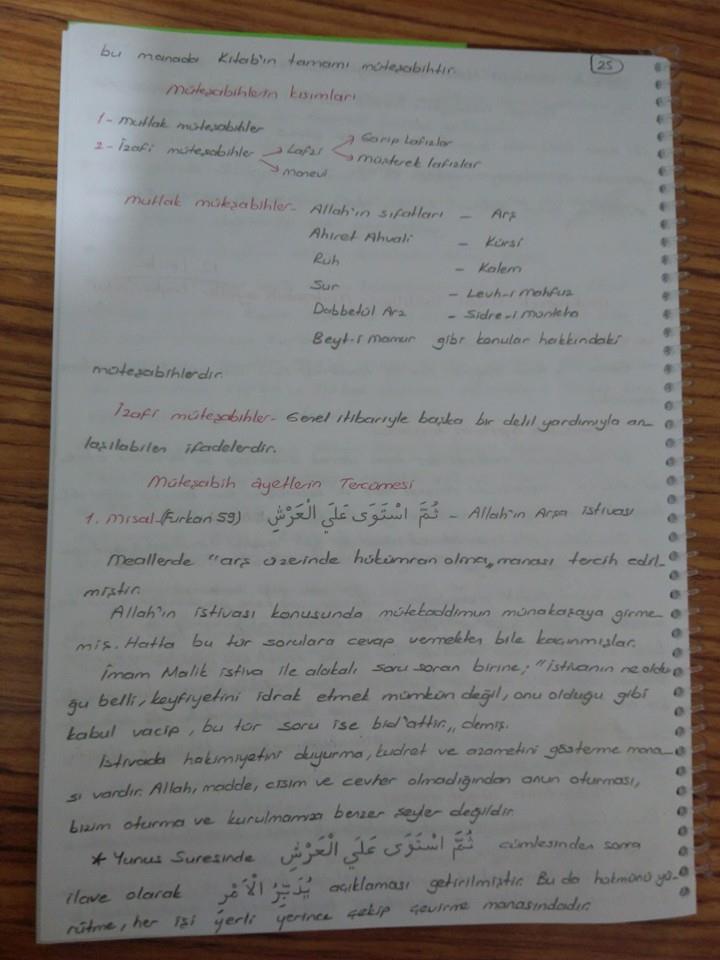 25
bu manada Kitab'ın tamamı müteşabihtir.
Müteşabihlerin kısımları
1- mutlak müteşabihler
2- İzafi müteşabihler → Lafzi → Garip Lafızlar
→ müşterek lafızlar
→ manevi
mutlak müteşabihler- Allah'ın sıfatları - Arş
Ahiret Ahvali - Kürsi
Ruh - Kalem
Sur - Levh-i mahfuz
Dabbetül Arz - Sidre-i münteha
Beyt-i mamur gibi konular hakkındaki
müteşabihlerdir.
İzafi müteşabihler- Genel itibariyle başka bir delil yardımıyla an-
laşılabilen ifadelerdir.
Müteşabih âyetlerin Tercümesi
1. misal-(Furkan 59) ثُمَّ اسْتَوَى عَلَي الْعَرْشِ - Allah'ın Arşa istivası
Meallerde "arş üzerinde hükümran olma" manası tercih edil-
miştir.
Allah'ın istivası konusunda mütekaddimun münakaşaya girme-
miş. Hatta bu tür sorulara cevap vermekten bile kaçınmışlar.
İmam Malik istiva ile alakalı soru soran birine; "istivanın ne oldu-
ğu belli, keyfiyetini idrak etmek mümkün değil, onu olduğu gibi
kabul vacip, bu tür soru ise bid'attir" demiş.
İstivada hakimiyetini duyurma, kudret ve azametini gösterme mana-
sı vardır. Allah, madde, cisim ve cevher olmadığından onun oturması,
bizim oturma ve kurulmamıza benzer şeyler değildir.
* Yunus Suresinde ثُمَّ اسْتَوَى عَلَي الْعَرْشِ cümlesinden sonra
ilave olarak يُدَبِّرُ الْاَمْرَ açıklaması getirilmiştir. Bu da hükmünü yü-
rütme, her işi yerli yerince çekip çevirme manasındadır.